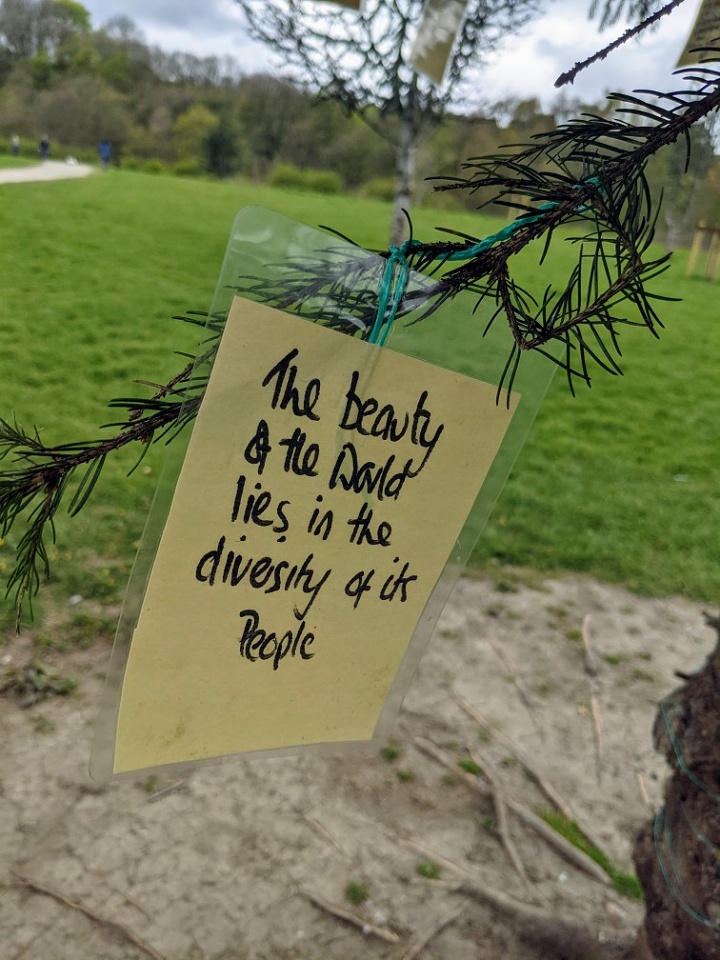 The beauty
of the World
lies in the
diversity of its
People